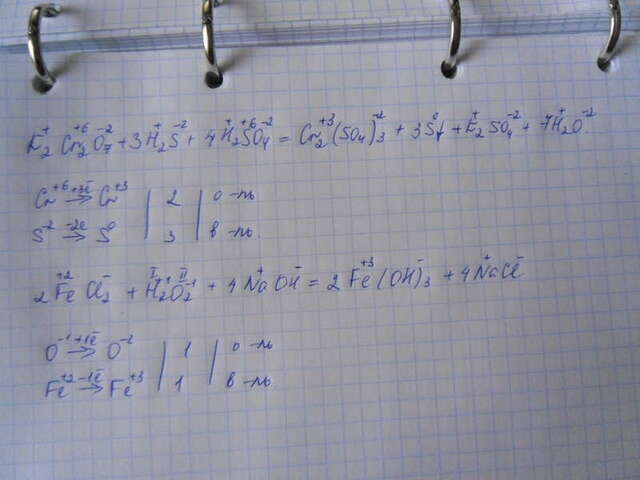 K₂⁺Cr₂⁺⁶O₇⁻² + 3H₂⁺S⁻² + 4H₂⁺S⁺⁶O₄⁻² = Cr₂⁺³(SO₄)₃⁻² + 3S⁰↓ + K₂⁺SO₄⁻² + 7H₂⁺O⁻²
Cr⁺⁶ +3ē→ Cr⁺³ | 2 | о-ль
S⁻² -2ē→ S⁰ | 3 | в-ль.
2Fe⁺²Cl₂⁻ + H₂⁺O₂⁻¹ + 4Na⁺OH⁻ = 2Fe⁺³(OH)₃⁻ + 4Na⁺Cl⁻
O⁻¹ +1ē→ O⁻² | 1 | о-ль
Fe⁺² -1ē→ Fe⁺³ | 1 | в-ль.